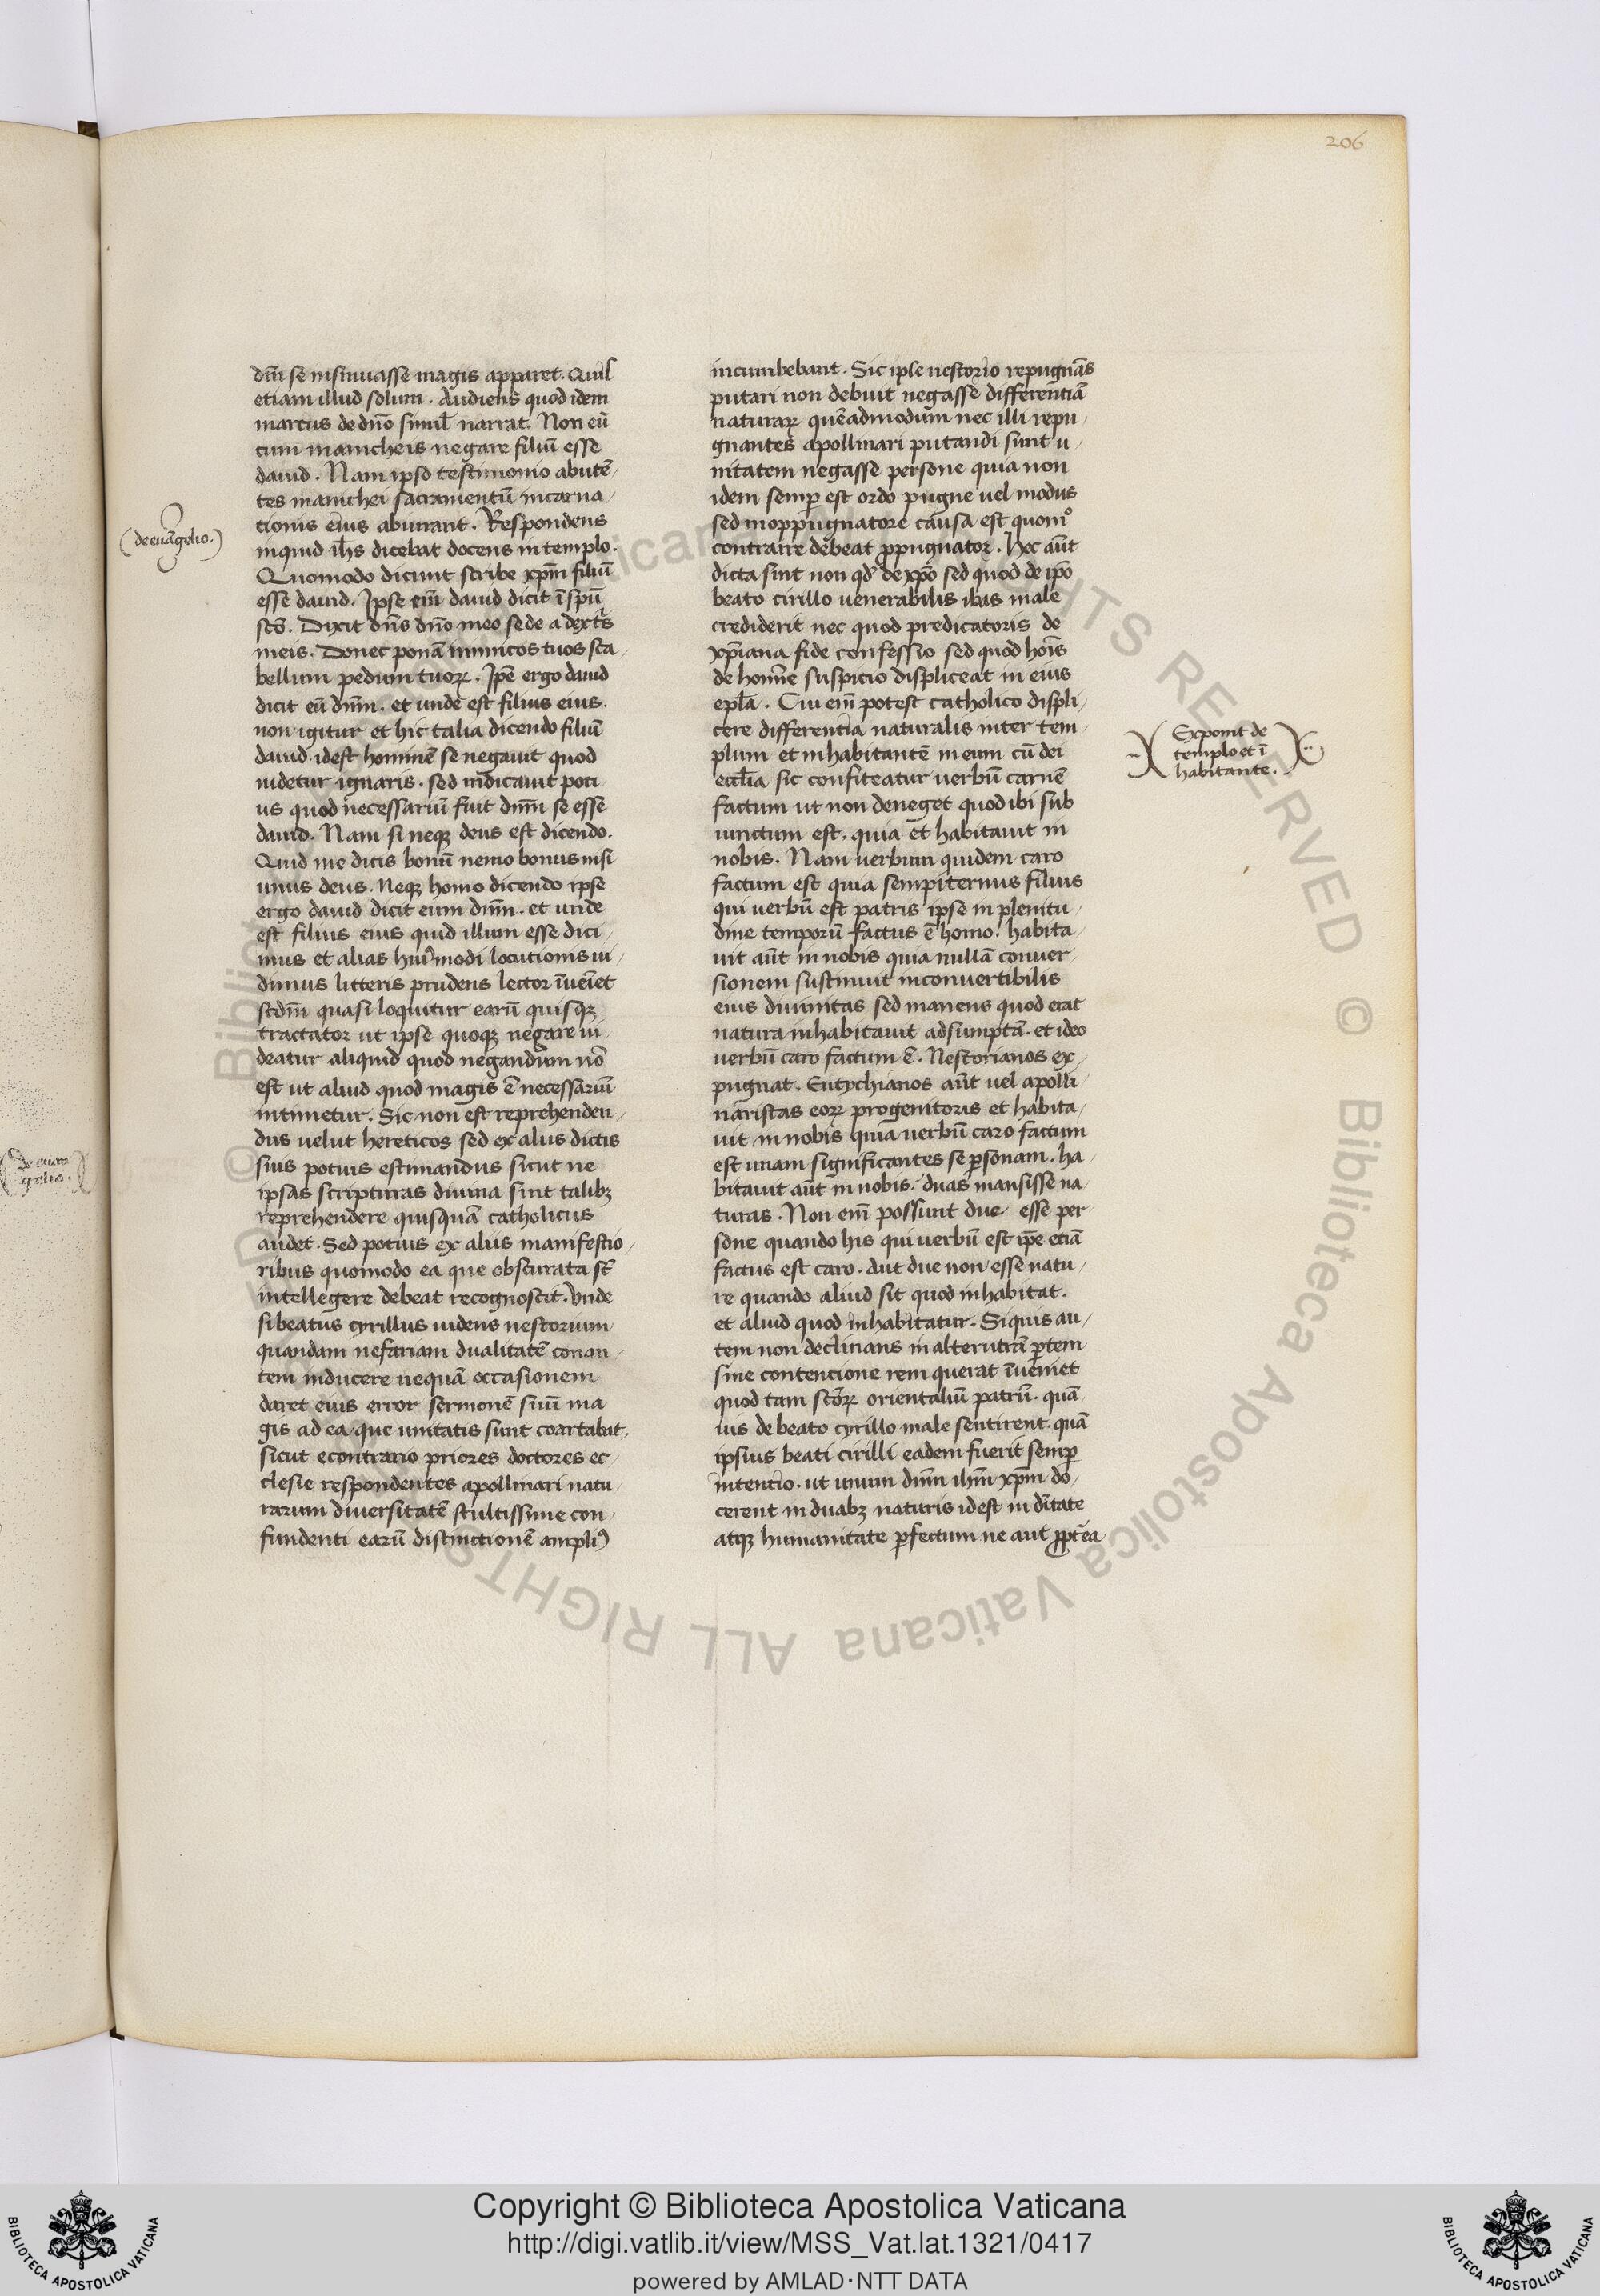 206
dm̄ se insinuasse magis apparet. Quil
etiam illud solum. Audiens quod idem
marcus de dn̄o simil̄ narrat. Non eū
cum manicheis negare filiū esse
dauid. Nam ipso testimonio abutē-
tes manichei sacramentū incarna-
tionis eius abnuant. Respondens
inquid ih̄s dicebat docens in templo.
Quomodo dicunt scribe xp̄m filiū
esse dauid. Ipse em̄ dauid dicit ī spū
scō. Dixit dn̄s dn̄o meo sede a dextr̄s
meis. Donec ponā inimicos tuos sca-
bellum pedum tuoꝝ. Ipē ergo dauid
dicit eū dnm̄. et unde est filius eius.
non igitur et hic talia dicendo filiū
dauid. idest hominē se negauit quod
uidetur ignaris. sed indicauit poti-
us quod necessariū fuit dnm̄ se esse
dauid. Nam si neqꝫ deus est dicendo.
Quid me dicis bonū nemo bonus nisi
unus deus. Neqꝫ homo dicendo ipse
ergo dauid dicit eum dnm̄. et unde
est filius eius quid illum esse dici-
mus et alias hui᾽modi locutionis ui-
dimus litteris prudens lector īueīet
scdm̄ quasi loquitur earū quisqꝫ
tractator ut ipse quoqꝫ negare ui-
deatur aliquid quod negandum nō
est ut aliud quod magis ē necessariū
intimetur. Sic non est reprehenden-
dus uelut hereticos sed ex alus dictis
suis potius estimandus sicut ne
ipsas scripturas diuina sint talibꝫ
reprehendere quisquā catholicus
audet. Sed potius ex aliis manifestio-
ribus quomodo ea que obscurata st̄
intellegere debeat recognoscit. Vnde
si beatus cyrillus uidens nestorium
quandam nefariam dualitatē conan-
tem inducere nequā occasionem
daret eius error sermonē suū ma
gis ad ea que unitatis sunt coartabat.
sicut econtrario priores doctores ec-
clesie respondentes apollinari natu-
rarum diuersitatē stultissime con-
fundenti earū distinctionē ampliꝰ
incumbebant. Sic ipse nestorio repugnās
putari non debuit negasse differentiā
naturaꝝ quēadmodum nec illi repu-
gnantes apollinari putandi sunt u-
nitatem negasse persone quia non
idem semꝑ est ordo pugne uel modus
sed in oppugnatore causa est quom̊
contraire debeat ꝓpugnator. Hec aūt
dicta sint non qd̄ de xp̄o sed quod de ip̄o
beato cirillo uenerabilis ibas male
crediderit nec quod predicatoris de
xp̄iana fide confessio sed quod hoīs
de homīe suspicio displiceat in eius
epl̄a. Cui em̄ potest catholico displi-
cere differentia naturalis inter tem-
plum et inhabitantē in eum cū dei
eccl̄ia sic confiteatur uerbū carnē
factum ut non deneget quod ibi sub
iunctum est. quia et habitauit in
nobis. Nam uerbum quidem caro
factum est quia sempiternus filius
qui uerbū est patris ipse in plenitu-
dine temporū factus ē homo. habita-
uit aūt in nobis quia nullā conuer-
sionem sustinuit inconuertibilis
eius diuinitas sed manens quod erat
natura inhabitauit adsumptā. et ideo
uerbū caro factum ē. Nestorianos ex-
pugnat. Eutychianos aūt uel apolli-
naristas eoꝝ progenitoris et habita-
uit in nobis quia uerbū caro factum
est unam significantes se ꝑsonam. ha-
bitauit aūt in nobis. duas mansisse na-
turas. Non em̄ possunt due esse per-
sone quando his qui uerbū est ip̄e etiā
factus est caro. Aut due non esse natu-
re quando aliud sit quod inhabitat.
et aliud quod inhabitatur. Siquis au-
tem non declinans in alterutrā ꝑtem
sine contencione rem querat īueniet
quod tam sctōꝝ orientaliū patrū. quā
uis de beato cyrillo male sentirent. quā
ipsius beati cirilli eadem fuerit semꝑ
intentio. ut unum dnm̄ ihm̄ xp̄m do-
cerent in duabꝫ naturis idest in dītate
atqꝫ humanitate ꝑfectum ne aut ꝓpt̄ea
(de euāgelio.)
Exponit de
templo et ī
habitante.
de euan
gelio.
© Biblioteca Apostolica Vaticana ALL RIGHTS RESERVED
Copyright © Biblioteca Apostolica Vaticana
http://digi.vatlib.it/view/MSS_Vat.lat.1321/0417
powered by AMLAD·NTT DATA
BIBLIOTECA APOSTOLICA VATICANA
BIBLIOTECA APOSTOLICA VATICANA